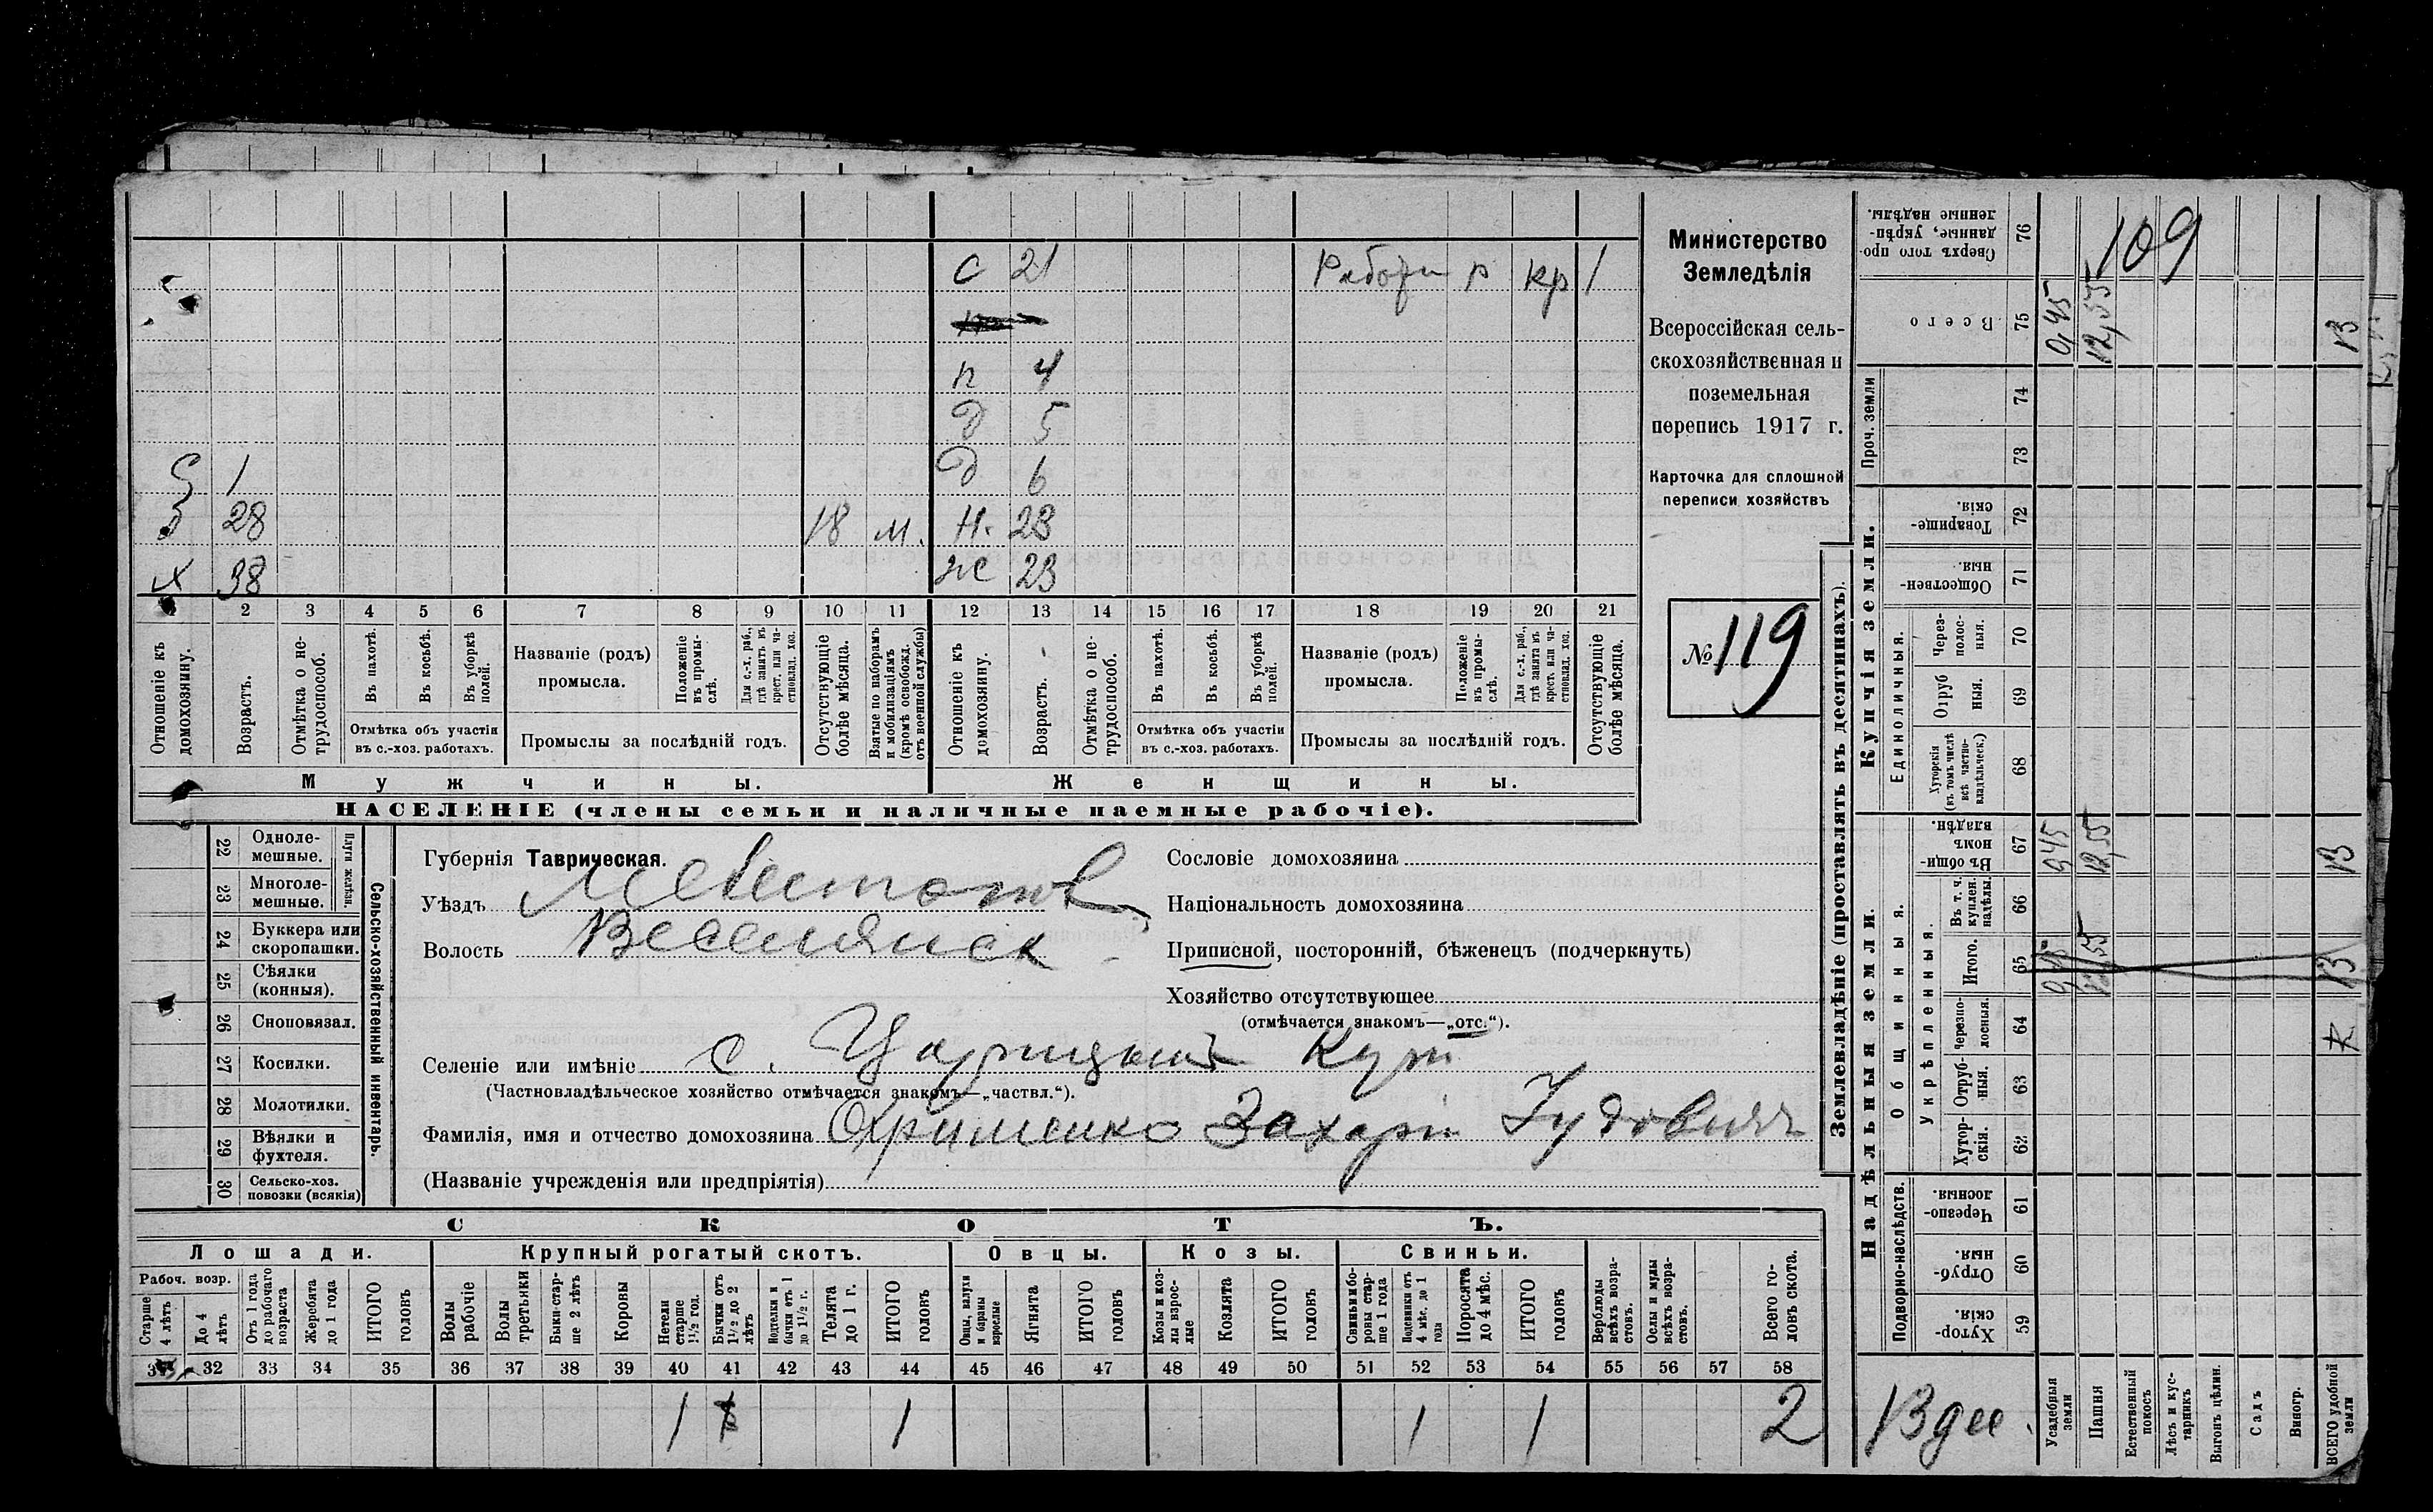 С 21 Рабочи р кр 1
п 4
д 5
С 1 д 6
б 28 18 м. Н. 23
х 38 же 23
1 2 3 4 5 6 7 8 9 10 11 12 13 14 15 16 17 18 19 20 21
Отношеніе къ домохозяину.
Возрастъ.
Отмѣтка о не-трудоспособ.
Въ пахотѣ.
Въ косьбѣ.
Въ уборкѣ полей.
Отмѣтка объ участіи
въ с.-хоз. работахъ.
Названіе (родъ)
промысла.
Положеніе въ промы-слѣ.
Для с.-х. раб., гдѣ занятъ въ крест. или ча-стновлад. хоз.
Промыслы за послѣдній годъ.
Отсутствующіе болѣе мѣсяца.
Взятые по наборамъ и мобилизаціямъ (кромѣ освобожд. отъ военной службы)
Отношеніе къ домохозяину.
Возрастъ.
Отмѣтка о не-трудоспособ.
Въ пахотѣ.
Въ косьбѣ.
Въ уборкѣ полей.
Отмѣтка объ участіи
въ с.-хоз. работахъ.
Названіе (родъ)
промысла.
Положеніе въ промы-слѣ.
Для с.-х. раб., гдѣ занята въ крест. или ча-стновлад. хоз.
Промыслы за послѣдній годъ.
Отсутствующіе болѣе мѣсяца.
Мужчины. Женщины.
НАСЕЛЕНІЕ (члены семьи и наличные наемные рабочіе).
Министерство
Земледѣлія
Всероссійская сель-
скохозяйственная и
поземельная
перепись 1917 г.
Карточка для сплошной
переписи хозяйствъ
№ 119
22 Одноле-мешные.
23 Многоле-мешные.
Плуги желѣзн.
24 Буккера или скоропашки.
25 Сѣялки (конныя).
26 Сноповязал.
27 Косилки.
28 Молотилки.
29 Вѣялки и фухтеля.
30 Сельско-хоз. повозки (всякія)
Сельско-хозяйственный инвентарь.
Губернія Таврическая.
Уѣздъ Мелитопол
Волость Веселянск
Селеніе или имѣніе с. Царицынъ Кут
(Частновладѣльческое хозяйство отмѣчается знакомъ—„частвл.“).
Фамилія, имя и отчество домохозяина Охрименко Захарій Іудовичъ
(Названіе учрежденія или предпріятія)
Сословіе домохозяина
Національность домохозяина
Приписной, посторонній, бѣженецъ (подчеркнуть)
Хозяйство отсутствующее
(отмѣчается знакомъ—„отс.“).
СКОТЪ.
Лошади. Крупный рогатый скотъ. Овцы. Козы. Свиньи.
Рабоч. возр.
Старше 4 лѣтъ
До 4 лѣтъ
Отъ 1 года до рабочаго возраста
Жеребята до 1 года
ИТОГО головъ
Волы рабочіе
Волы третьяки
Быки стар-ше 2 лѣтъ
Коровы
Нетели старше 1½ год.
Бычки отъ 1½ до 2 лѣтъ
Подтелки и бычки отъ 1 до 1½ г.
Телята до 1 г.
ИТОГО головъ
Овцы, валухи и бараны взрослые
Ягнята
ИТОГО головъ
Козы и коз-лы взрос-лые
Козлята
ИТОГО головъ
Свиньи и бо-ровы стар-ше 1 года
Подсвинки отъ 4 мѣс. до 1 года
Поросята до 4 мѣс.
ИТОГО головъ
Верблюды всѣхъ возра-стовъ.
Ослы и мулы всѣхъ возра-стовъ.
Всего го-ловъ скота.
31 32 33 34 35 36 37 38 39 40 41 42 43 44 45 46 47 48 49 50 51 52 53 54 55 56 57 58
1 1 1 1 2
Землевладѣніе (проставлять въ десятинахъ).
Купчія земли.
Надѣльныя земли.
Проч. земли
Единоличныя.
Общинныя.
Укрѣпленныя.
Подворно-наслѣдств.
76 Сверхъ того про-данные, укрѣп-ленные надѣлы.
109
75 Всего 0,45 12,55 13
74
73
72 Товарище-скія.
71 Обществен-ныя.
70 Через-полос-ныя.
69 Отруб ныя.
68 Хуторскія (въ томъ числѣ всѣ частно-владѣльческ.)
67 Въ общи-номъ владѣн. 0,45 12,55 13
66 Въ т. ч. куплен. надѣлы.
65 Итого. 0,45 12,55 13
64 Черезпо-лосныя.
63 Отруб-ныя.
62 Хутор-скія.
61 Черезпо-лосныя.
60 Отруб-ныя.
59 Хутор-скія.
13 дес.
Усадебныя земли
Пашня
Естественный покосъ
Лѣсъ и кус-тарникъ
Выгонъ цѣлин.
Садъ
Виногр.
ВСЕГО удобной земли